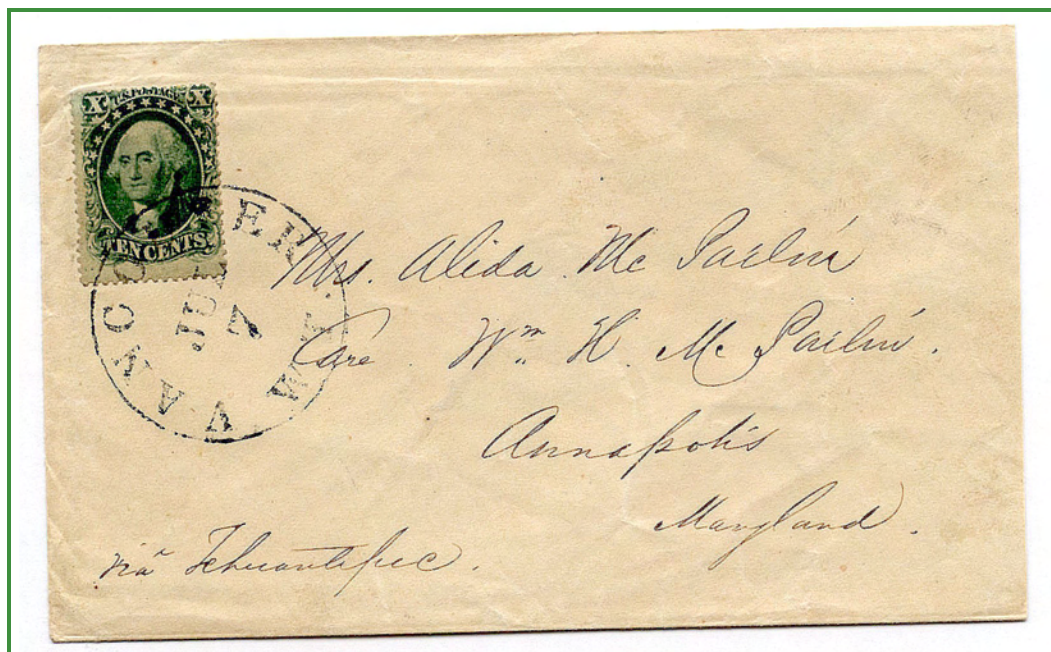 X U.S. POSTAGE X
TEN CENTS
VANCOUVER. W.T.
JUL
7
Mrs. Alida Mc Parlin
Care. Wm. H. Mc Parlin.
Annapolis
Maryland.
via Tehuantepec.